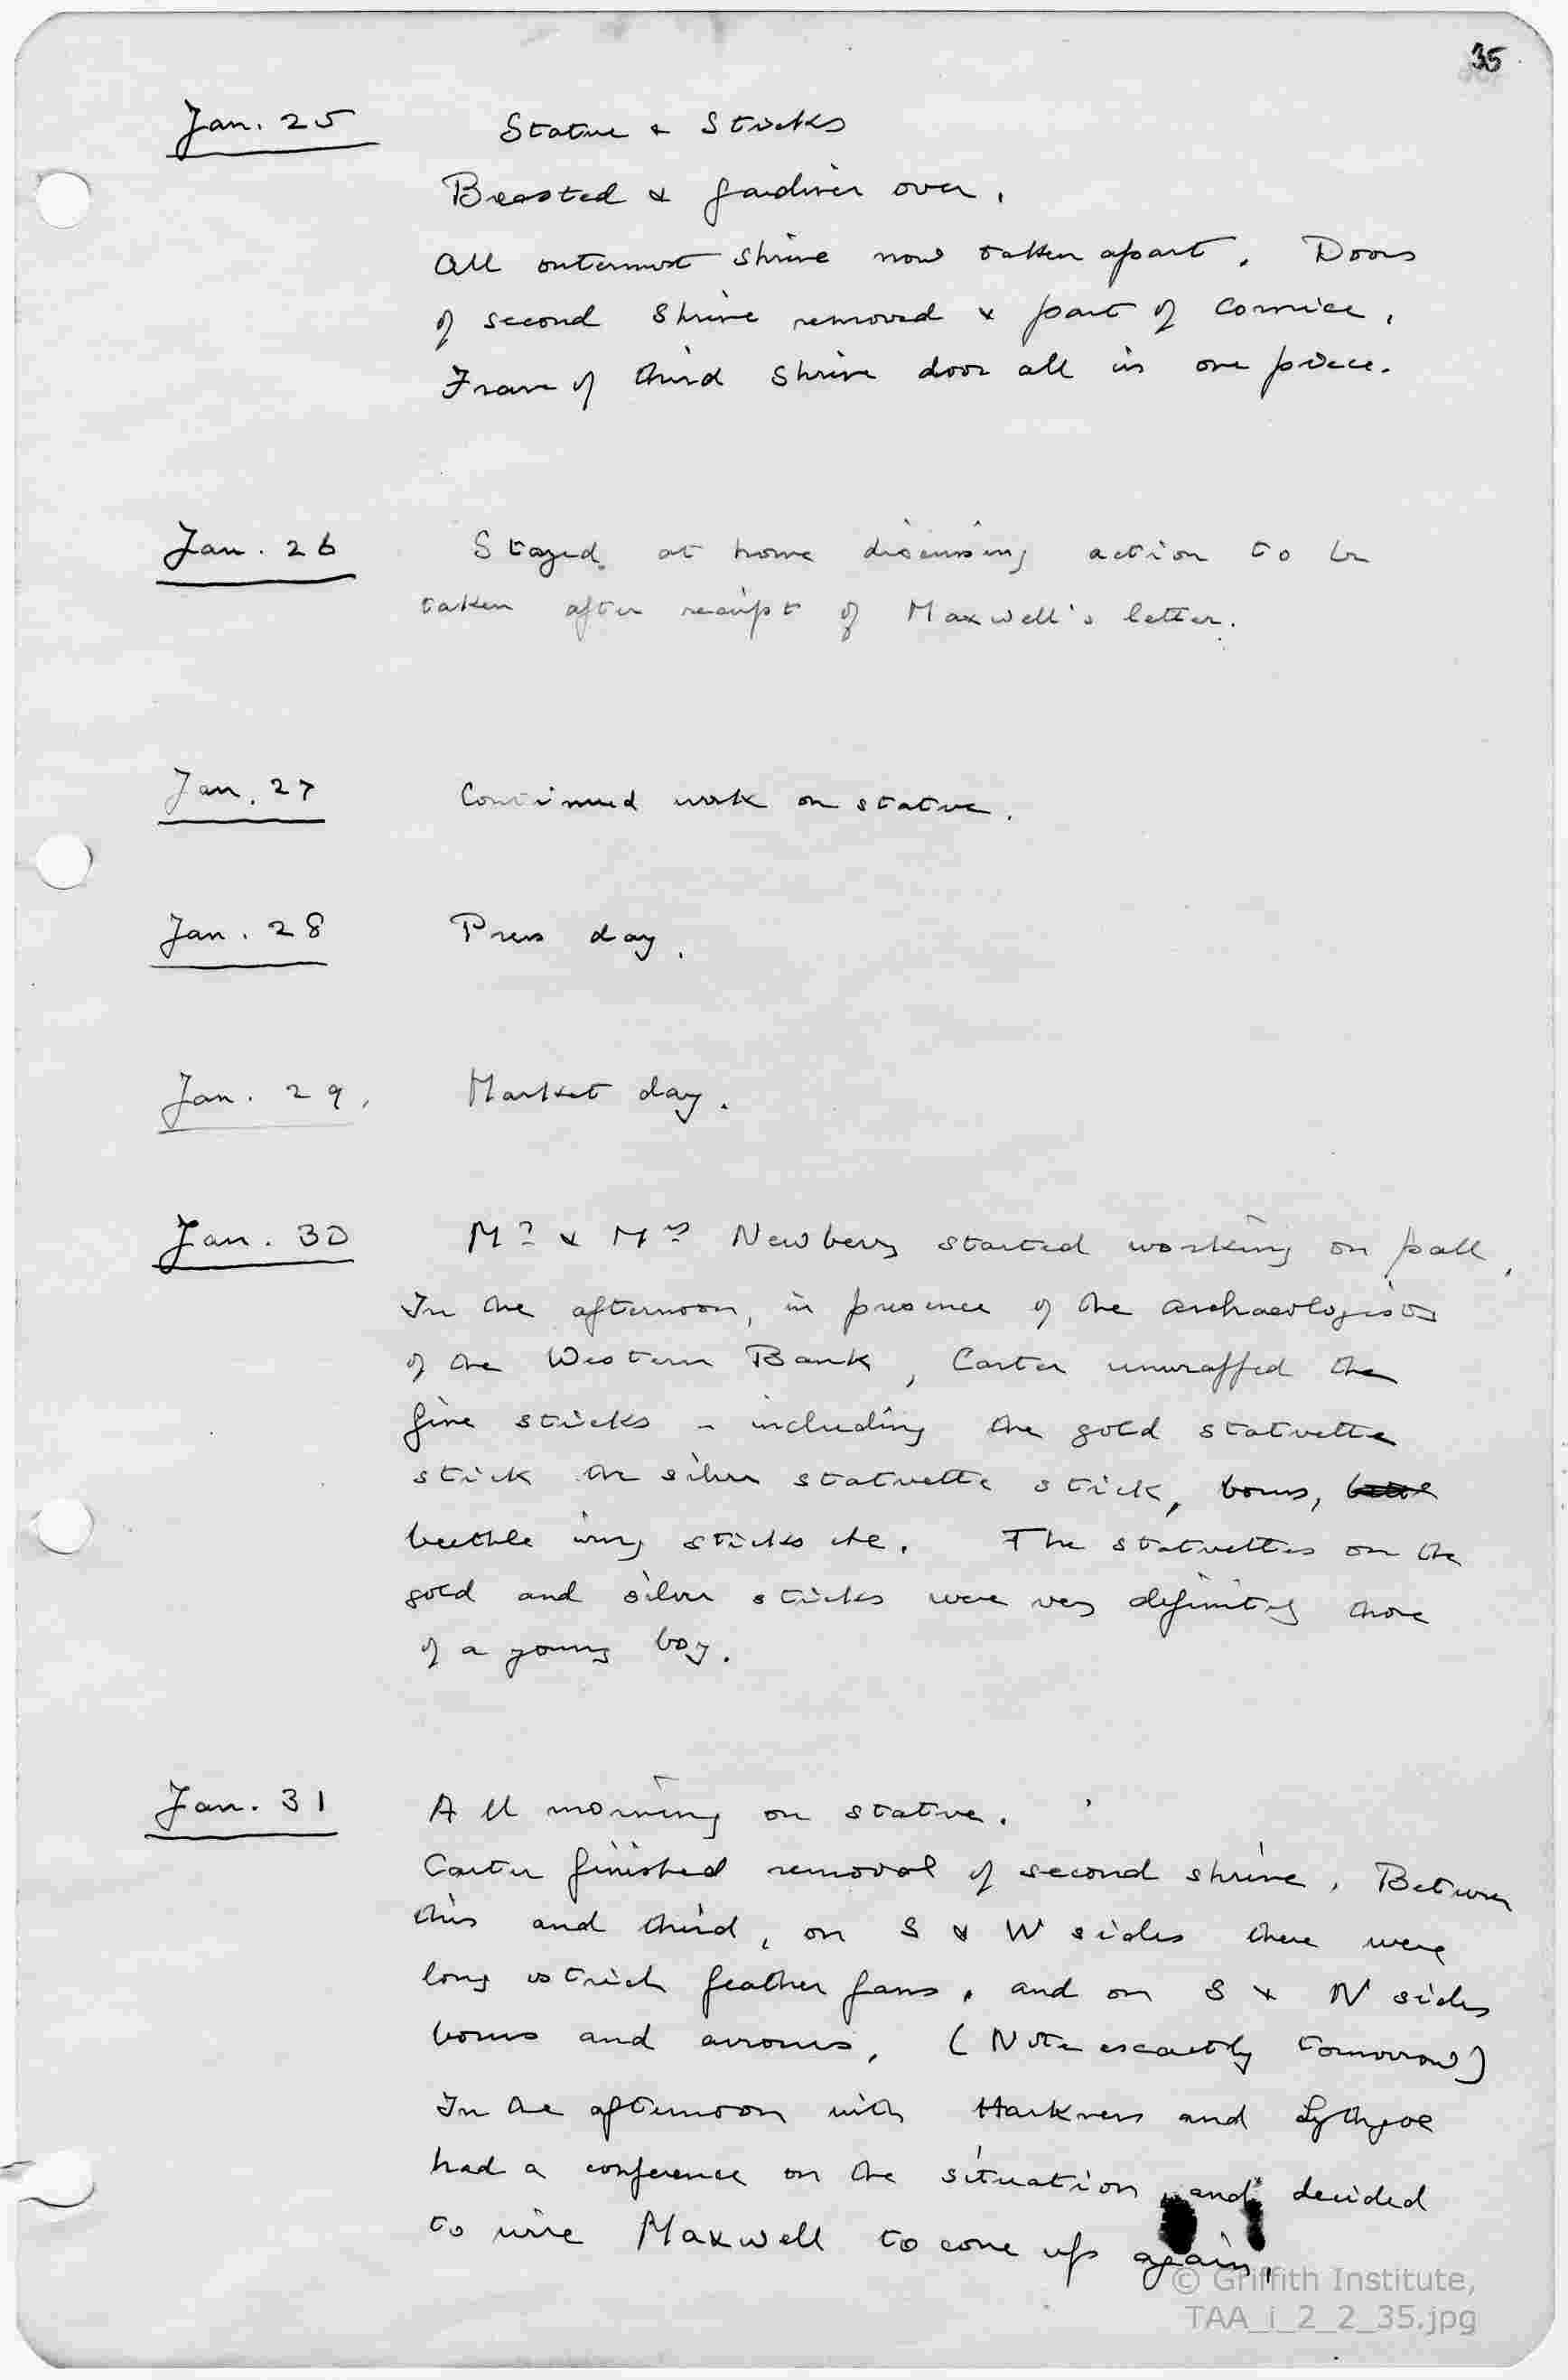 35
Jan. 25 Statue & Sticks
Breasted & Gardiner over.
All outermost shrine now taken apart. Doors
of second shrine removed & part of cornice.
Frame of third shrine door all in one piece.
Jan. 26 Stayed at home discussing action to be
taken after receipt of Maxwell's letter.
Jan. 27 Continued work on statue.
Jan. 28 Press day.
Jan. 29. Market day.
Jan. 30 Mr & Mrs Newberry started working on pall.
In the afternoon, in presence of the archaeologists
of the Western Bank, Carter unwrapped the
fine sticks - including the gold statuette
stick the silver statuette stick, bows,
beethle wing sticks etc. The statuettes on the
gold and silver sticks were very definitely those
of a young boy.
Jan. 31 All morning on statue.
Carter finished removal of second shrine. Between
this and third, on S & W sides there were
long ostrich feather fans, and on S & N sides
bows and arrows. (Note exactly tomorrow)
In the afternoon with Harkness and Lythgoe
had a conference on the situation and decided
to wire Maxwell to come up again.
© Griffith Institute,
TAA_i_2_2_35.jpg